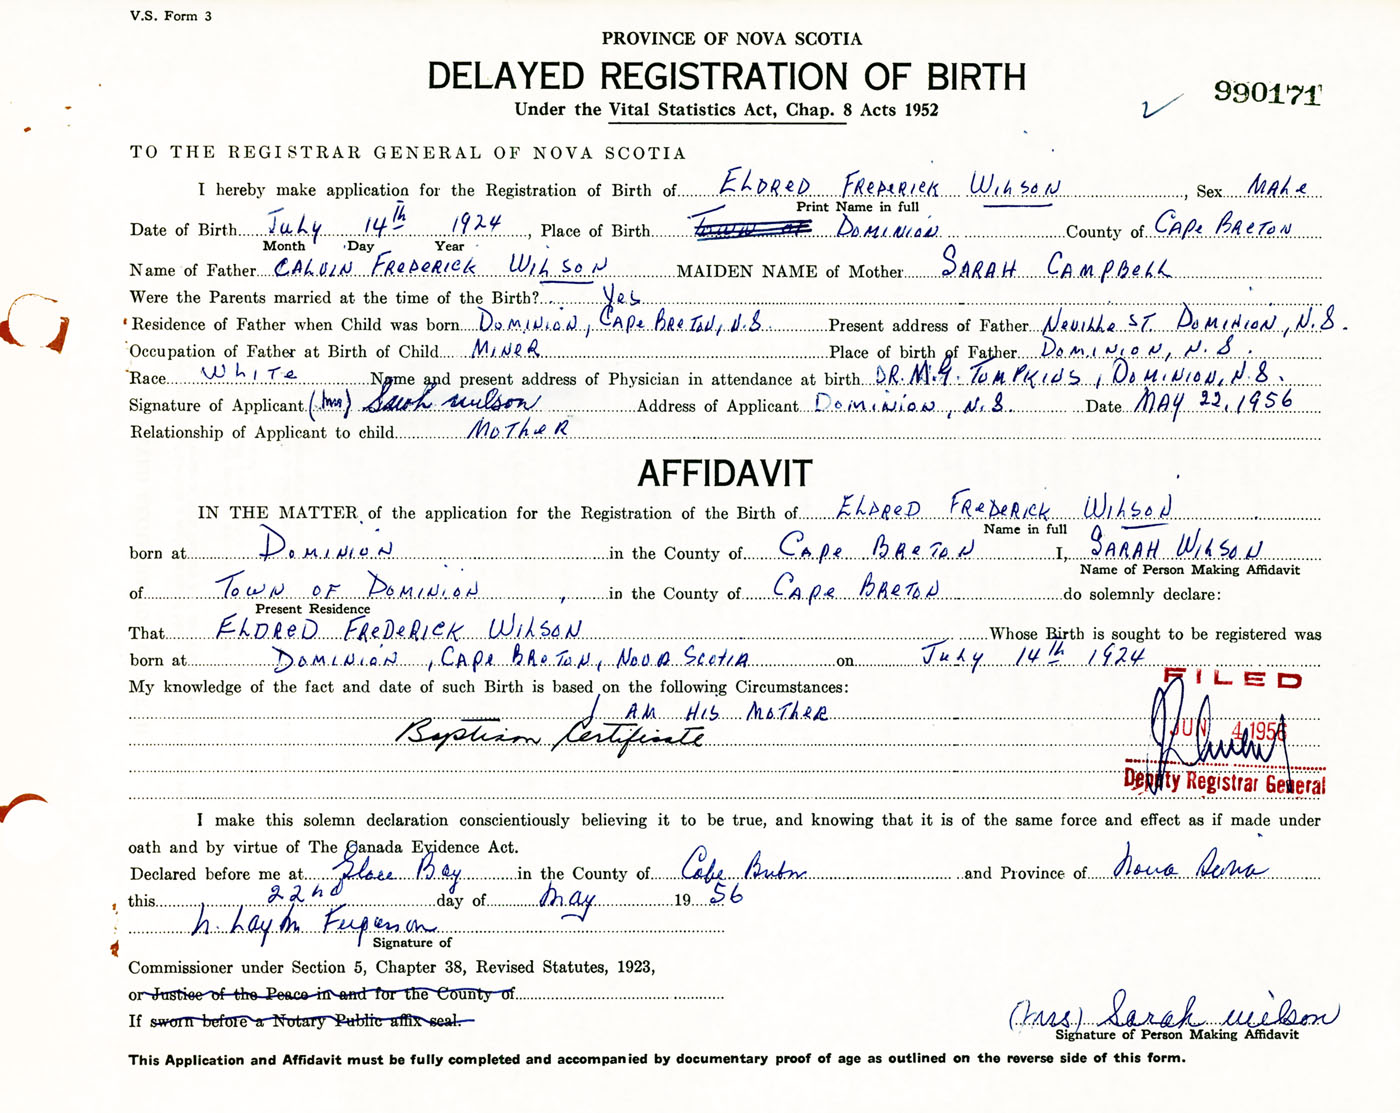 V.S. Form 3
PROVINCE OF NOVA SCOTIA
DELAYED REGISTRATION OF BIRTH
990171
Under the Vital Statistics Act, Chap. 8 Acts 1952
TO THE REGISTRAR GENERAL OF NOVA SCOTIA
I hereby make application for the Registration of Birth of ELDRED FREDERICK WILSON, Sex MALE
Print Name in full
Date of Birth July 14th 1924, Place of Birth Town of DOMINION County of CAPE BRETON
Month Day Year
Name of Father CALVIN FREDERICK WILSON MAIDEN NAME of Mother SARAH CAMPBELL
Were the Parents married at the time of the Birth? Yes
Residence of Father when Child was born DOMINION, CAPE BRETON, N.S Present address of Father Neville ST. DOMINION, N.S.
Occupation of Father at Birth of Child MINER Place of birth of Father DOMINION, N.S.
Race WHITE Name and present address of Physician in attendance at birth DR. M.G. TOMPKINS, DOMINION, N.S.
Signature of Applicant (Mrs) Sarah Wilson Address of Applicant DOMINION, N.S. Date MAY 22, 1956
Relationship of Applicant to child MOTHER
AFFIDAVIT
IN THE MATTER of the application for the Registration of the Birth of ELDRED FREDERICK WILSON
Name in full
born at DOMINION in the County of CAPE BRETON I, SARAH WILSON
Name of Person Making Affidavit
of TOWN OF DOMINION, in the County of CAPE BRETON do solemnly declare:
Present Residence
That ELDRED FREDERICK WILSON Whose Birth is sought to be registered was
born at DOMINION, CAPE BRETON, NOVA SCOTIA on July 14th 1924
My knowledge of the fact and date of such Birth is based on the following Circumstances:
FILED
I AM HIS MOTHER
Baptism Certificate
JUN 4 1956
Deputy Registrar General
I make this solemn declaration conscientiously believing it to be true, and knowing that it is of the same force and effect as if made under
oath and by virtue of The Canada Evidence Act.
Declared before me at Glace Bay in the County of Cape Breton and Province of Nova Scotia
this 22nd day of May 19 56
Ferguson
Signature of
Commissioner under Section 5, Chapter 38, Revised Statutes, 1923,
or Justice of the Peace in and for the County of
If sworn before a Notary Public affix seal.
(Mrs) Sarah Wilson
Signature of Person Making Affidavit
This Application and Affidavit must be fully completed and accompanied by documentary proof of age as outlined on the reverse side of this form.